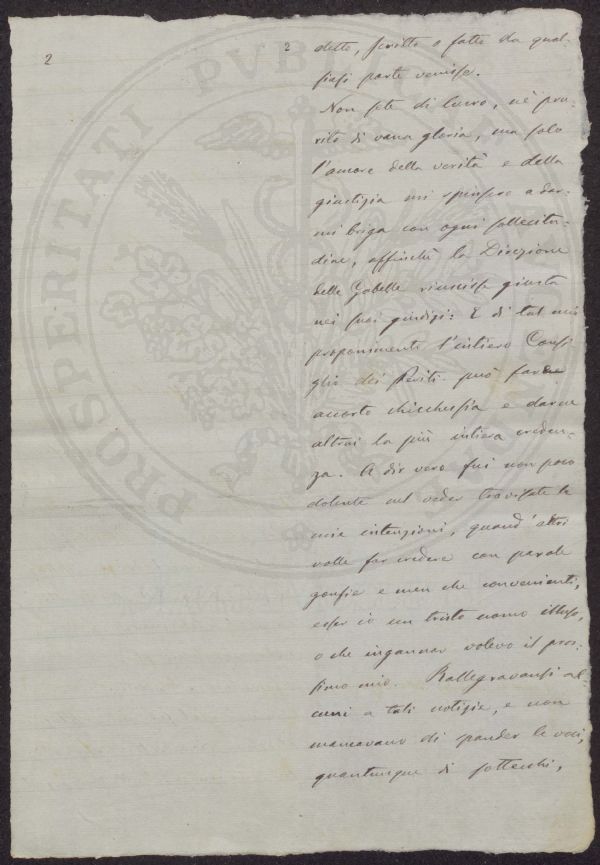 2
2
detto, scritto o fatto da qual-
siasi parte venisse.
Non sete di lucro, nè pru-
rito di vana gloria, ma solo
l'amore della verità e della
giustizia mi spinsero a dar-
mi briga con ogni sollecitu-
dine, affinchè la Direzione
delle Gabelle riuscisse giusta
nei suoi giudizi: E di tal mio
proponimento l'intiero Consi-
glio dei Periti può farne
accorto chicchessia e darne
altrui la più intiera creden-
za. A dir vero fui non poco
dolente nel veder travisate le
mie intenzioni, quand'altri
volle far credere con parole
gonfie e men che convenienti,
esser io un tristo uomo illuso,
o che ingannar volevo il pros-
simo mio. Rallegravansi al-
cuni a tali notizie, e non
mancavano di spander le voci,
quantunque di sottecchi,
PROSPERITATI PVBLICAE